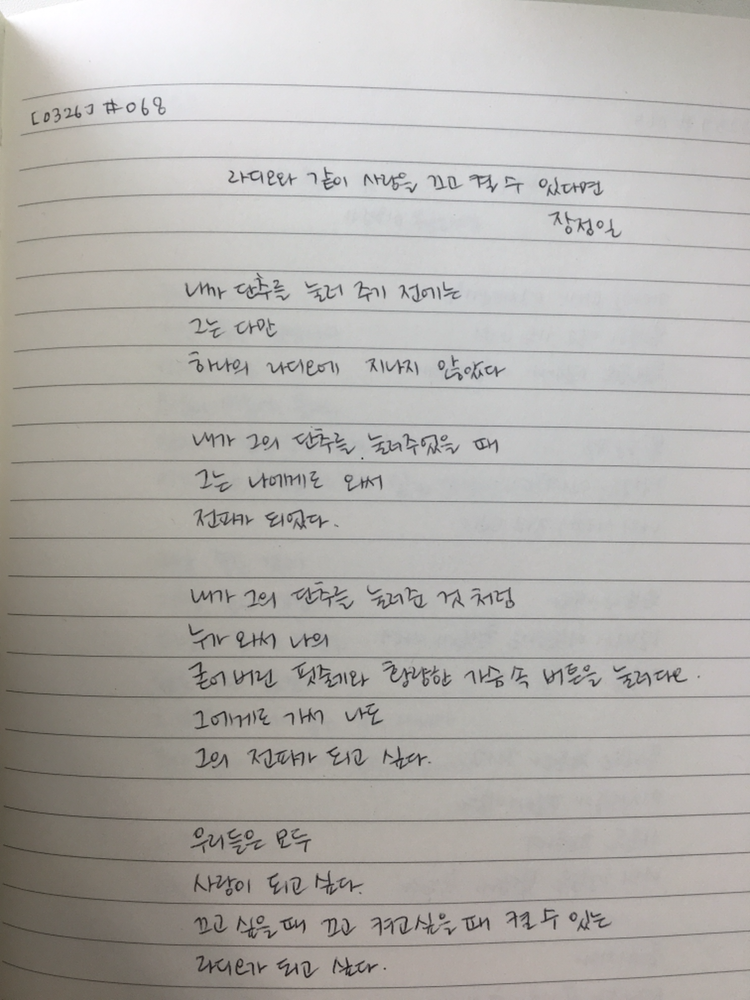 [0326] #068
라디오와 같이 사랑을 끄고 켤 수 있다면
장정일
내가 단추를 눌러 주기 전에는
그는 다만
하나의 라디오에 지나지 않았다
내가 그의 단추를 눌러주었을 때
그는 나에게로 와서
전파가 되었다.
내가 그의 단추를 눌러준 것 처럼
누가 와서 나의
굳어 버린 핏줄기와 황량한 가슴 속 버튼을 눌러다오.
그에게로 가서 나도
그의 전파가 되고 싶다.
우리들은 모두
사랑이 되고 싶다.
끄고 싶을 때 끄고 켜고 싶을 때 켤 수 있는
라디오가 되고 싶다.